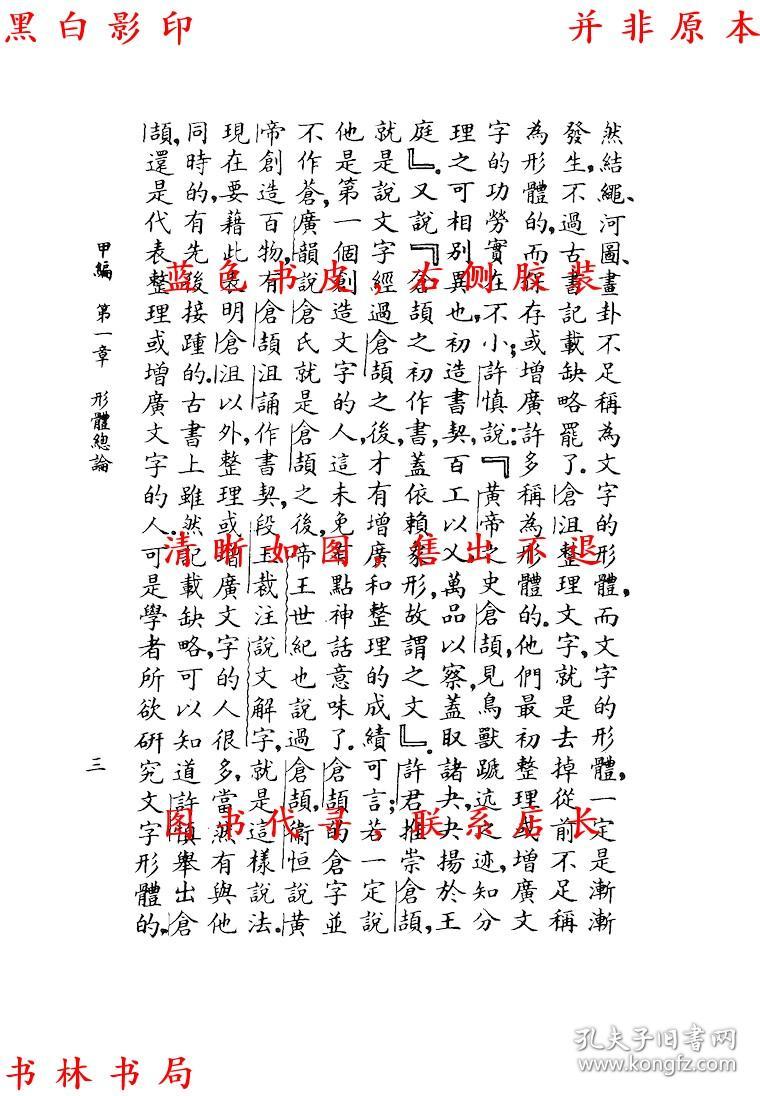 黑白影印
并非原本
然結繩、河圖、畫卦不足稱為文字的形體，而文字的形體，一定是漸漸
發生，不過古書記載缺略罷了。倉沮整理文字，就是去掉從前不足稱
為形體的，而保存或增廣許多稱為形體的。他們最初整理或增廣文
字的功勞實在不小；許慎說：『黃帝之史倉頡，見鳥獸蹏迒之迹，知分
理之可相別異也，初造書契，百工以乂，萬品以察，蓋取諸夬，夬揚於王
庭』。又說『倉頡之初作書，蓋依類象形，故謂之文』。許君推崇倉頡，
就是說文字經過倉頡之後，才有增廣和整理的成績可言；若一定說
他是第一個創造文字的人，這未免有點神話意味了。倉頡的倉字並
不作蒼，廣韻說倉氏就是倉頡之後，帝王世紀也說過倉頡，衞恒說黃
帝創造百物，有倉頡沮誦作書契，段玉裁注說文解字，就是這樣說法。
現在要藉此表明倉沮以外，整理或增廣文字的人很多，當然有與他
同時的，有先後接踵的。古書上雖然記載缺略，可以知道許慎舉出倉
頡，還是代表整理或增廣文字的人。可是學者所欲研究文字形體的，
甲編 第一章 形體總論
三
蓝色书皮，右侧胶装
清晰如图，售出不退
图书代寻，联系店长
书林书局
孔夫子旧书网
www.kongfz.com